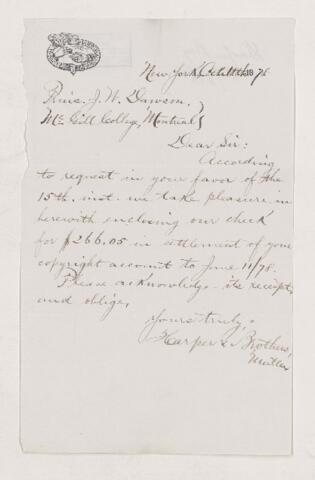 New York, Oct. 1878
Prin. J. W. Dawson,
Mc Gill College, Montreal
Dear Sir:
According
to request in your favor of the
15th. inst. we take pleasure in
herewith enclosing our check
for $266.05 in settlement of your
copyright account to June 11/78.
Please acknowledge its receipt,
and oblige,
Yours truly,
Harper & Brothers,